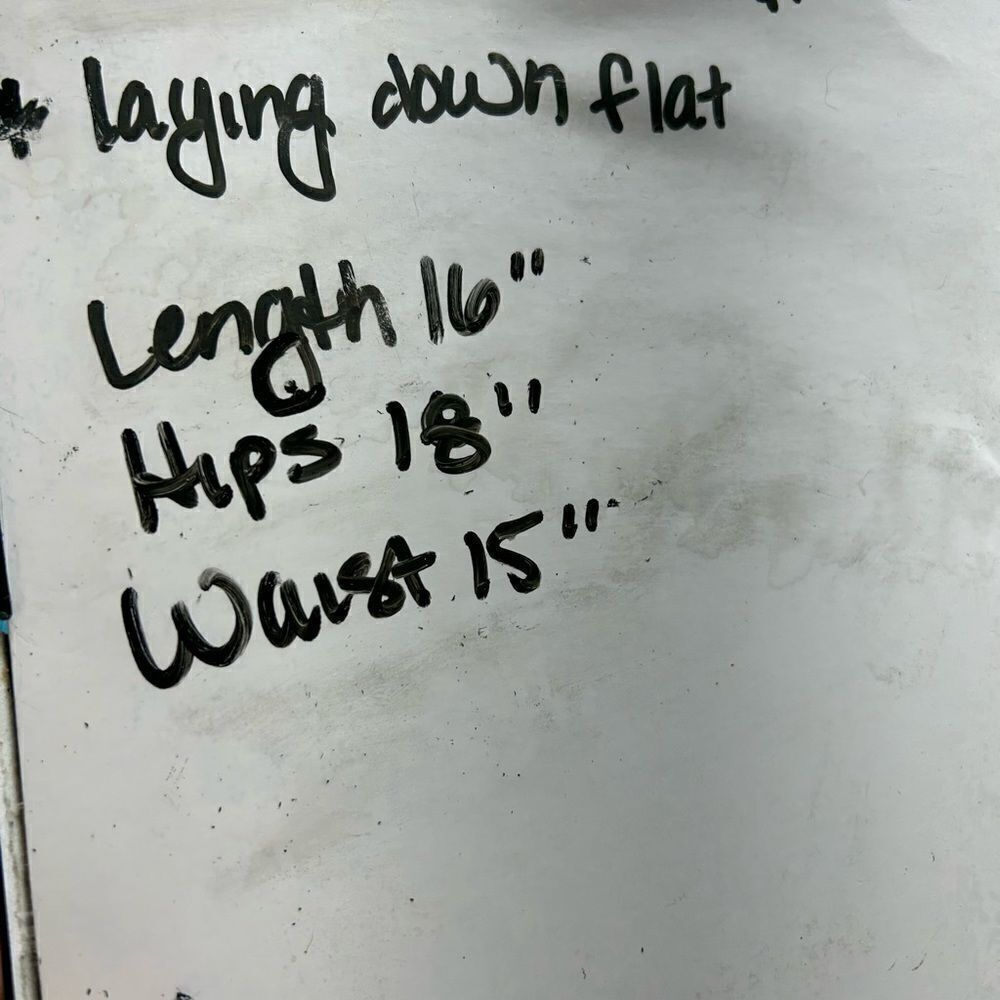 * laying down flat
Length 16"
Hips 18"
Waist 15"